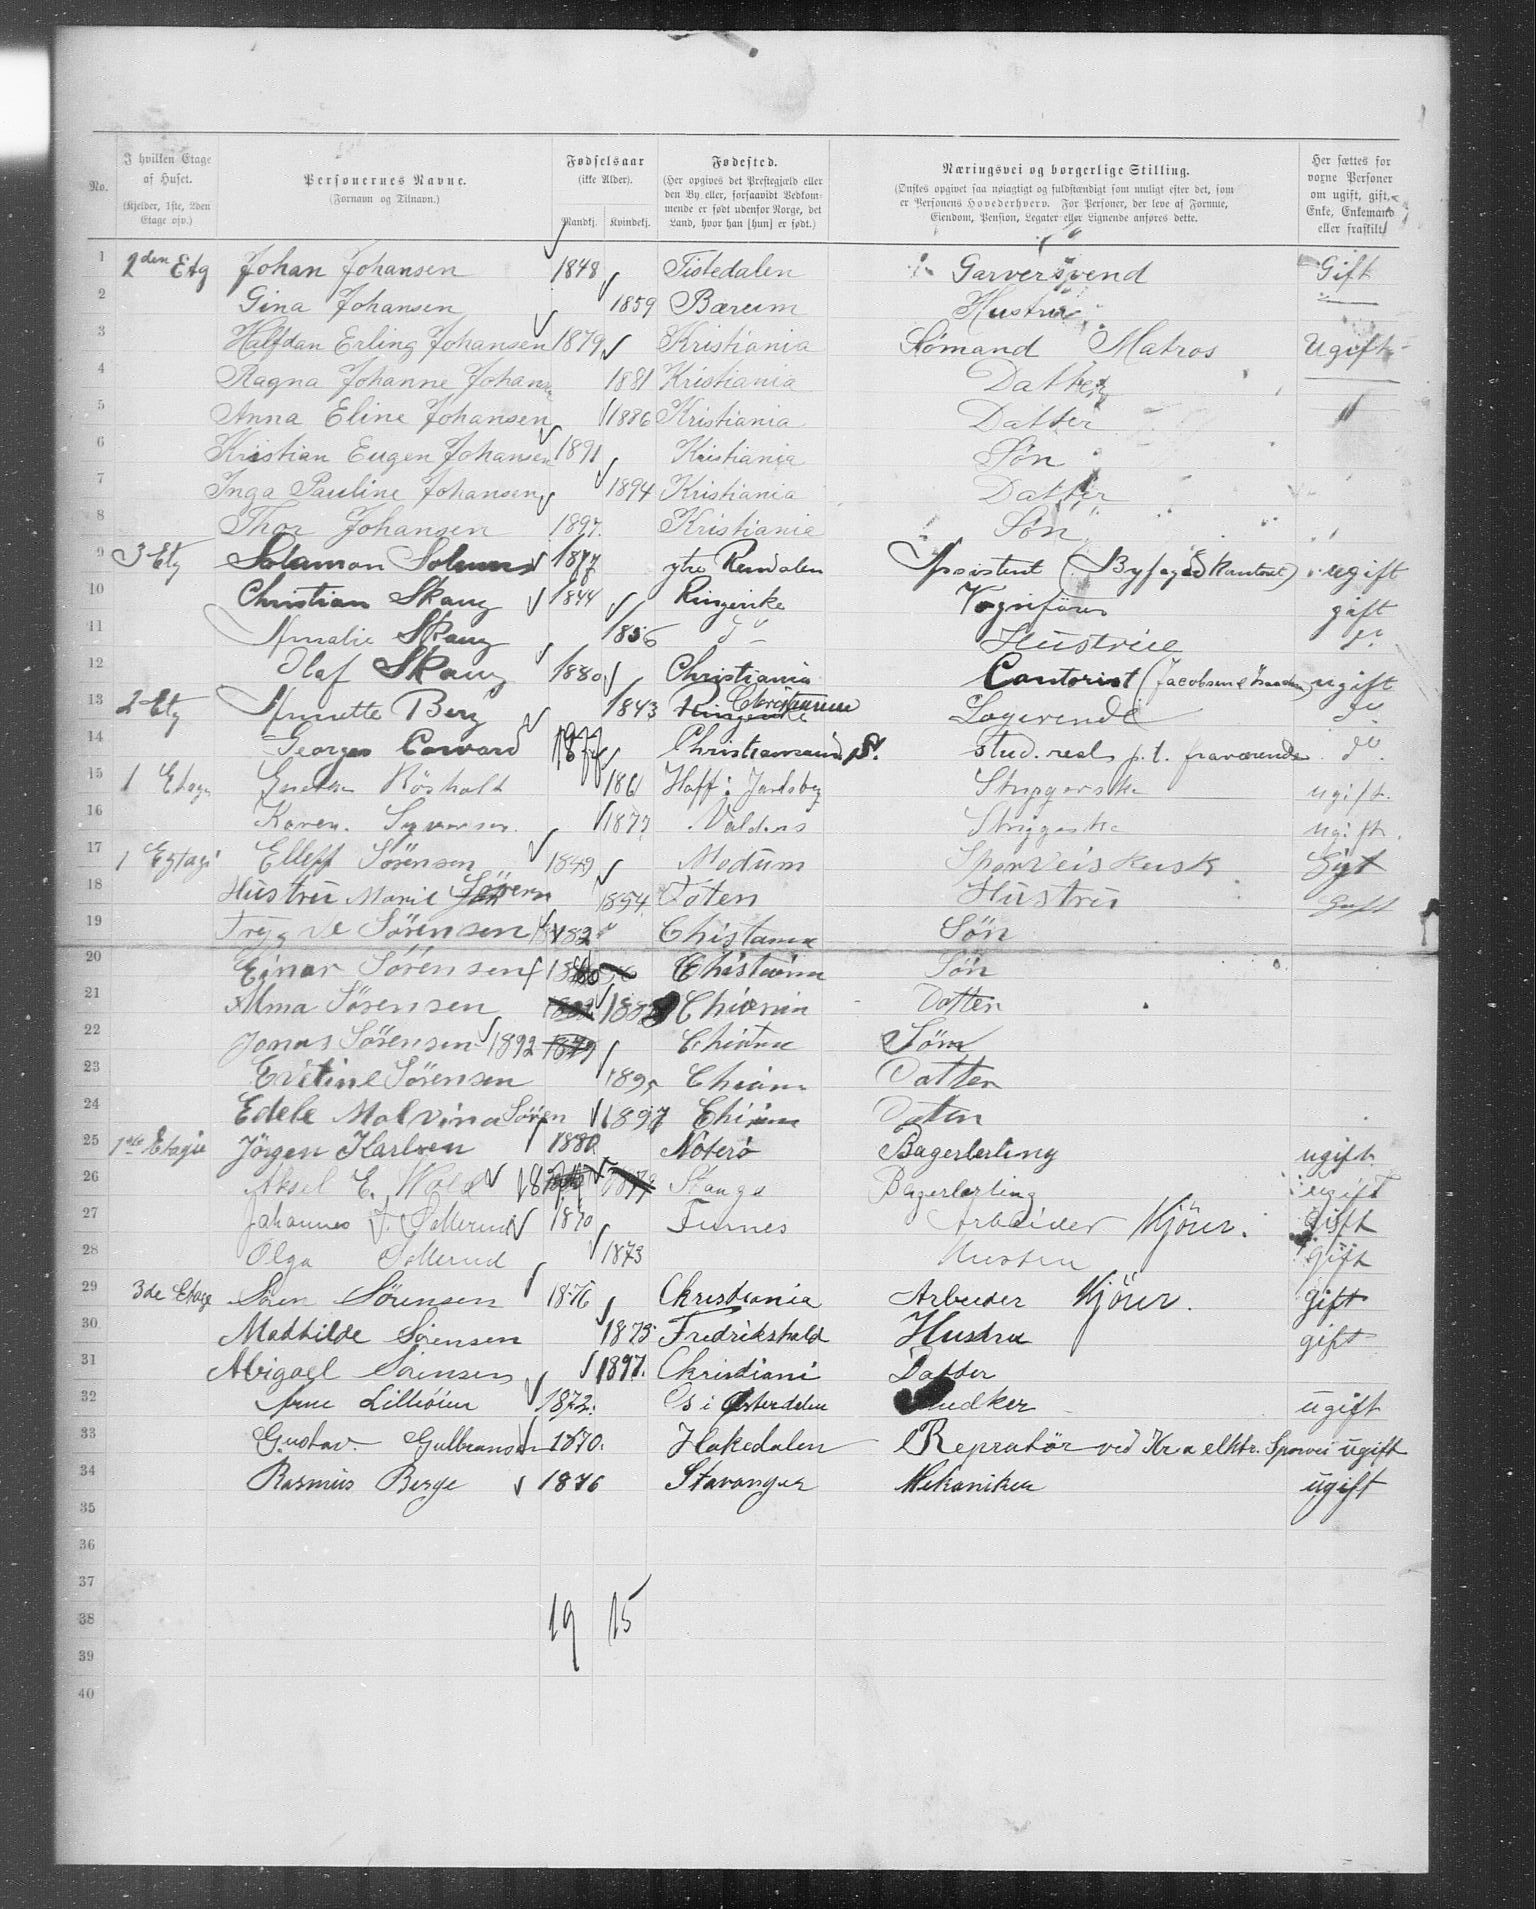 No.
I hvilken Etage af Huset. (Kjelder, 1ste, 2den Etage osv.)
Personernes Navne. (Fornavn og Tilnavn.)
Fødselsaar (ikke Alder). Mandkj. Kvindekj.
Fødested. (Her opgives det Prestegjæld eller den By eller, forsaavidt Vedkommende er født udenfor Norge, det Land, hvor han [hun] er født.)
Næringsvei og borgerlige Stilling. (Ønskes opgivet saa nøiagtigt og fuldstændigt som muligt efter det, som er Personens Hovederhverv. For Personer, der leve af Formue, Eiendom, Pension, Legater eller Lignende anføres dette.
Her sættes for voxne Personer om ugift, gift, Enke, Enkemand eller fraskilt.
1 2den Etg Johan Johansen 1848 Tistedalen Garversvend Gift
2 Gina Johansen 1859 Bærum Hustru —
3 Halfdan Erling Johansen 1879 Kristiania Sømand Matros Ugift
4 Ragna Johanne Johansen 1881 Kristiania Datter —
5 Anna Eline Johansen 1886 Kristiania Datter "
6 Kristian Eugen Johansen 1891 Kristiania Søn
7 Inga Pauline Johansen 1894 Kristiania Datter
8 Thor Johansen 1897 Kristiania Søn
9 3 Etg Salamon 1877 ytre Rendalen Assistent (Byfogedkantoret) ugift
10 Christian Skaug 1844 Ringerike Vognfører gift
11 Amalie Skaug 1856 do Hustrue do
12 Olaf Skaug 1880 Christiania Contorist (Jacobsen & ugift
13 2 Etg Annette Berg 1843 Ringerike Christiania Logerende do
14 Georges Coward 1877 Christiansand S. stud. real. p.t. fraværende do
15 1 Etage Røsholt 1861 Hoff i Jarlsberg Strygerske ugift.
16 Karen 1873 Valders Strygerske ugift.
17 1 Egtagi Elleff Sørensen 1849 Modum Sporveiskusk Gift
18 Hustru Marie Sørens 1854 Toten Hustru Gift
19 Trygve Sörensen 1882 Chistania Sön
20 Einar Sörensen Chistiania Sön
21 Alma Sörensen 188 Datter
22 Jonas Sörensen 1892 1879 Söm
23 Sörensen 1895 Datter
24 Edele Malvina Sören 1897 Daten
25 1ste Etagie Jörgen Karlsen 1880 Nøterø Bagerlerling ugift
26 Aksel E. Wold 18 1879 Stange Bagerlerling ugift
27 Johannes J. Sollerud 1870 Furnes Arbeider Kjörer. Gift
28 Olga Sollerud 1873 Hustru gift
29 3de Etage Sören Sörensen 1876 Christiania Arbeider Kjörer. gift
30 Mathilde Sørensen 1875 Fredrikshald Hustru gift
31 Abigael Sörensen 1897. Christiani Datter
32 Arne Lilleöien 1872. Os i Østerdalen ugift
33 Gustav Gulbransen 1870. Hakedalen Repratör ved Kra elktr. Sporvei ugift
34 Rasmus Berge 1876 Stavanger Mekaniker ugift
35
36
37
38 19 15
39
40